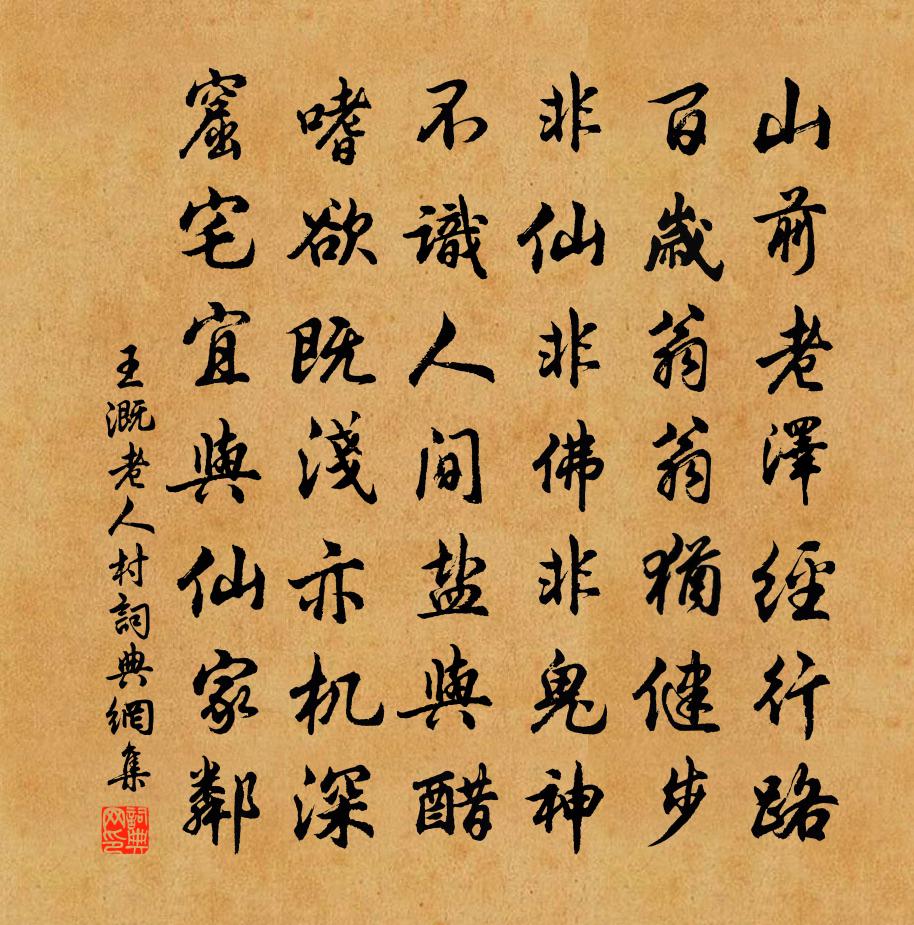 山前老澤經行路
百歲翁翁猶健步
非仙非佛非鬼神
不識人间盐與醋
嗜欲既淺亦机深
窟宅宜與仙家鄰
王溉老人村詞典網集
詞典网印